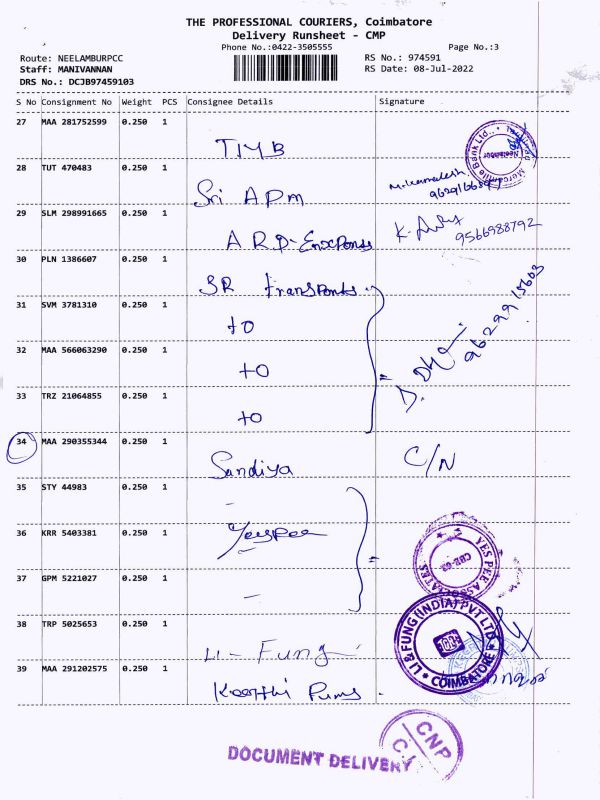 THE PROFESSIONAL COURIERS, Coimbatore
Delivery Runsheet - CMP
Phone No.:0422-3505555
Page No.:3
Route: NEELAMBURPCC
RS No.: 974591
Staff: MANIVANNAN
RS Date: 08-Jul-2022
DRS No.: DCJB97459103
S No Consignment No Weight PCS Consignee Details Signature
27 MAA 281752599 0.250 1
TIYB
Mercantile Bank Ltd.,
Neelambur
28 TUT 470483 0.250 1
Sri APM
29 SLM 298991665 0.250 1
K.
9566988792
30 PLN 1386607 0.250 1
SR
31 SVM 3781310 0.250 1
to
9629915603
32 MAA 566063290 0.250 1
to
33 TRZ 21064855 0.250 1
to
34 MAA 290355344 0.250 1
Sandiya C/N
35 STY 44983 0.250 1
36 KRR 5403381 0.250 1
Yespee
YES PEE ASSOCIATES
CBE-62
37 GPM 5221027 0.250 1
38 TRP 5025653 0.250 1
Li - Fung
LI & FUNG (INDIA) PVT LTD
COIMBATORE
39 MAA 291202575 0.250 1
Keerthi Pums.
DOCUMENT DELIVERY
CNP
C.I